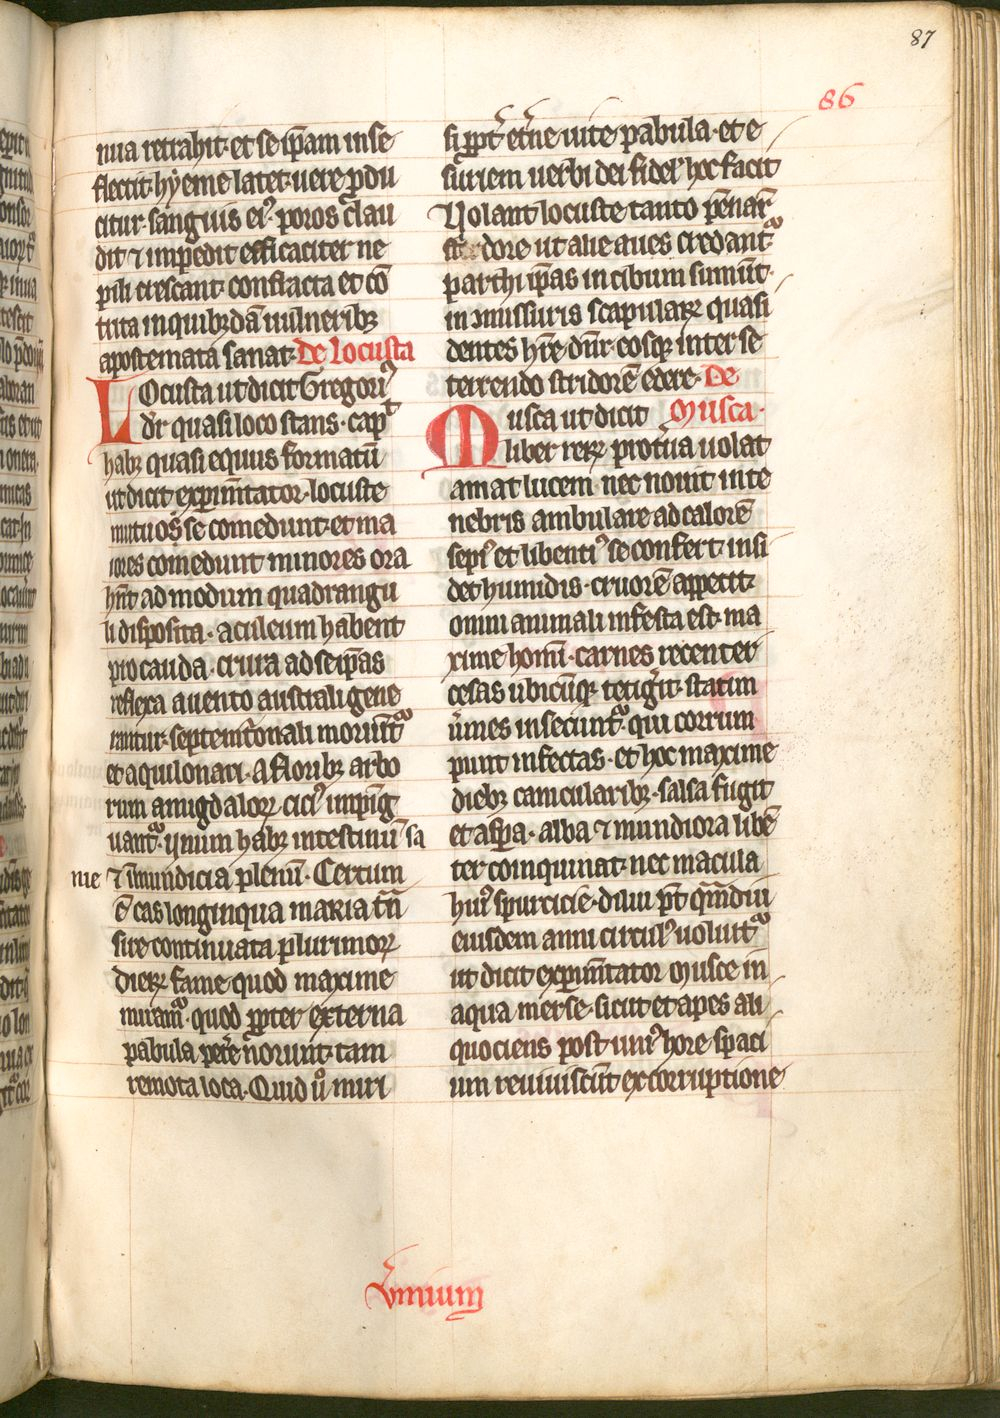 87
86
nua retrahit· et se ip̄am in se
flectit· hÿeme latet· uere ꝓdu
citur· sanguis eiꝰ poros clau
dit ⁊ impedit efficaciter ne
pili crescant· confracta et cō
trita in quibꝫdā uulneribꝫ
apostemata sanat· De locusta
LOcusta ut dicit Gregoriꝰ
dr̄ quasi loco stans· capᵗ
habꝫ quasi equus formatū
ut dicit exꝑim̄tator· locuste
mutuo se comedunt· et ma
iores comedunt minores ora
hn̄t ad modum quadrangu
li disposita· aculeum habent
pro cauda· crura ad se ip̄as
reflexa a uento australi gene
rantur· septemt͛onali moriūt᷑
et aquilonari· a floribꝫ arbo
rum amigdaloꝝ ciciꝰ imp̄ig
uant᷑· ẏnum habꝫ intestinū sa
nie ⁊ īmundicia plenū· Certum
ē eas longinqua maria tn̄
sire continuata plurimoꝝ
dierꝝ fame quod maxime
miram᷑· quod ꝓpter externa
pabula pet͛e norunt· tam
remota loca· Quid ū͛o miri
si ꝓpt͛ et͛ne uite pabula· et e
suriem uerbi dei fidel᷑ hoc facit
Volant locuste tanto pēnaꝝ
stridore ut alie aues credant᷑
parthi ip̄as in cibum sumūt·
in ɔmissuris scapularꝝ quasi
dentes hr̄e dn̄r· eosqꝫ inter se
terendo stridorē edere· De
MUsca ut dicit Musca·
liber rerꝝ prot͛ua uolat
amat lucem nec nouit in te
nebris ambulare ad calorē
sepiꝰ et libentiꝰ se confert insi
det humidis· cruorē appetit·
omni animali infesta est· ma
xime homī· carnes recenter
cesas ubicūqꝫ tetig͛it· statim
ū͛mes inseciunt᷑ qui corrum
punt infectas· et hoc maxime
diebꝫ canicularibꝫ· salsa fugit
et aspa· alba ⁊ mundiora libē
ter coinquinat· nec macula
huiꝰ spurcicie· dilui p̄t qm̄diu
eiusdem anni circulꝰ uoluit᷑
ut dicit exꝑim̄tator Musce in
aqua merse· sicut et apes ali
quociens post uniꝰ hore spaci
um reuiuiscūt ex corruptione
ū͛mium